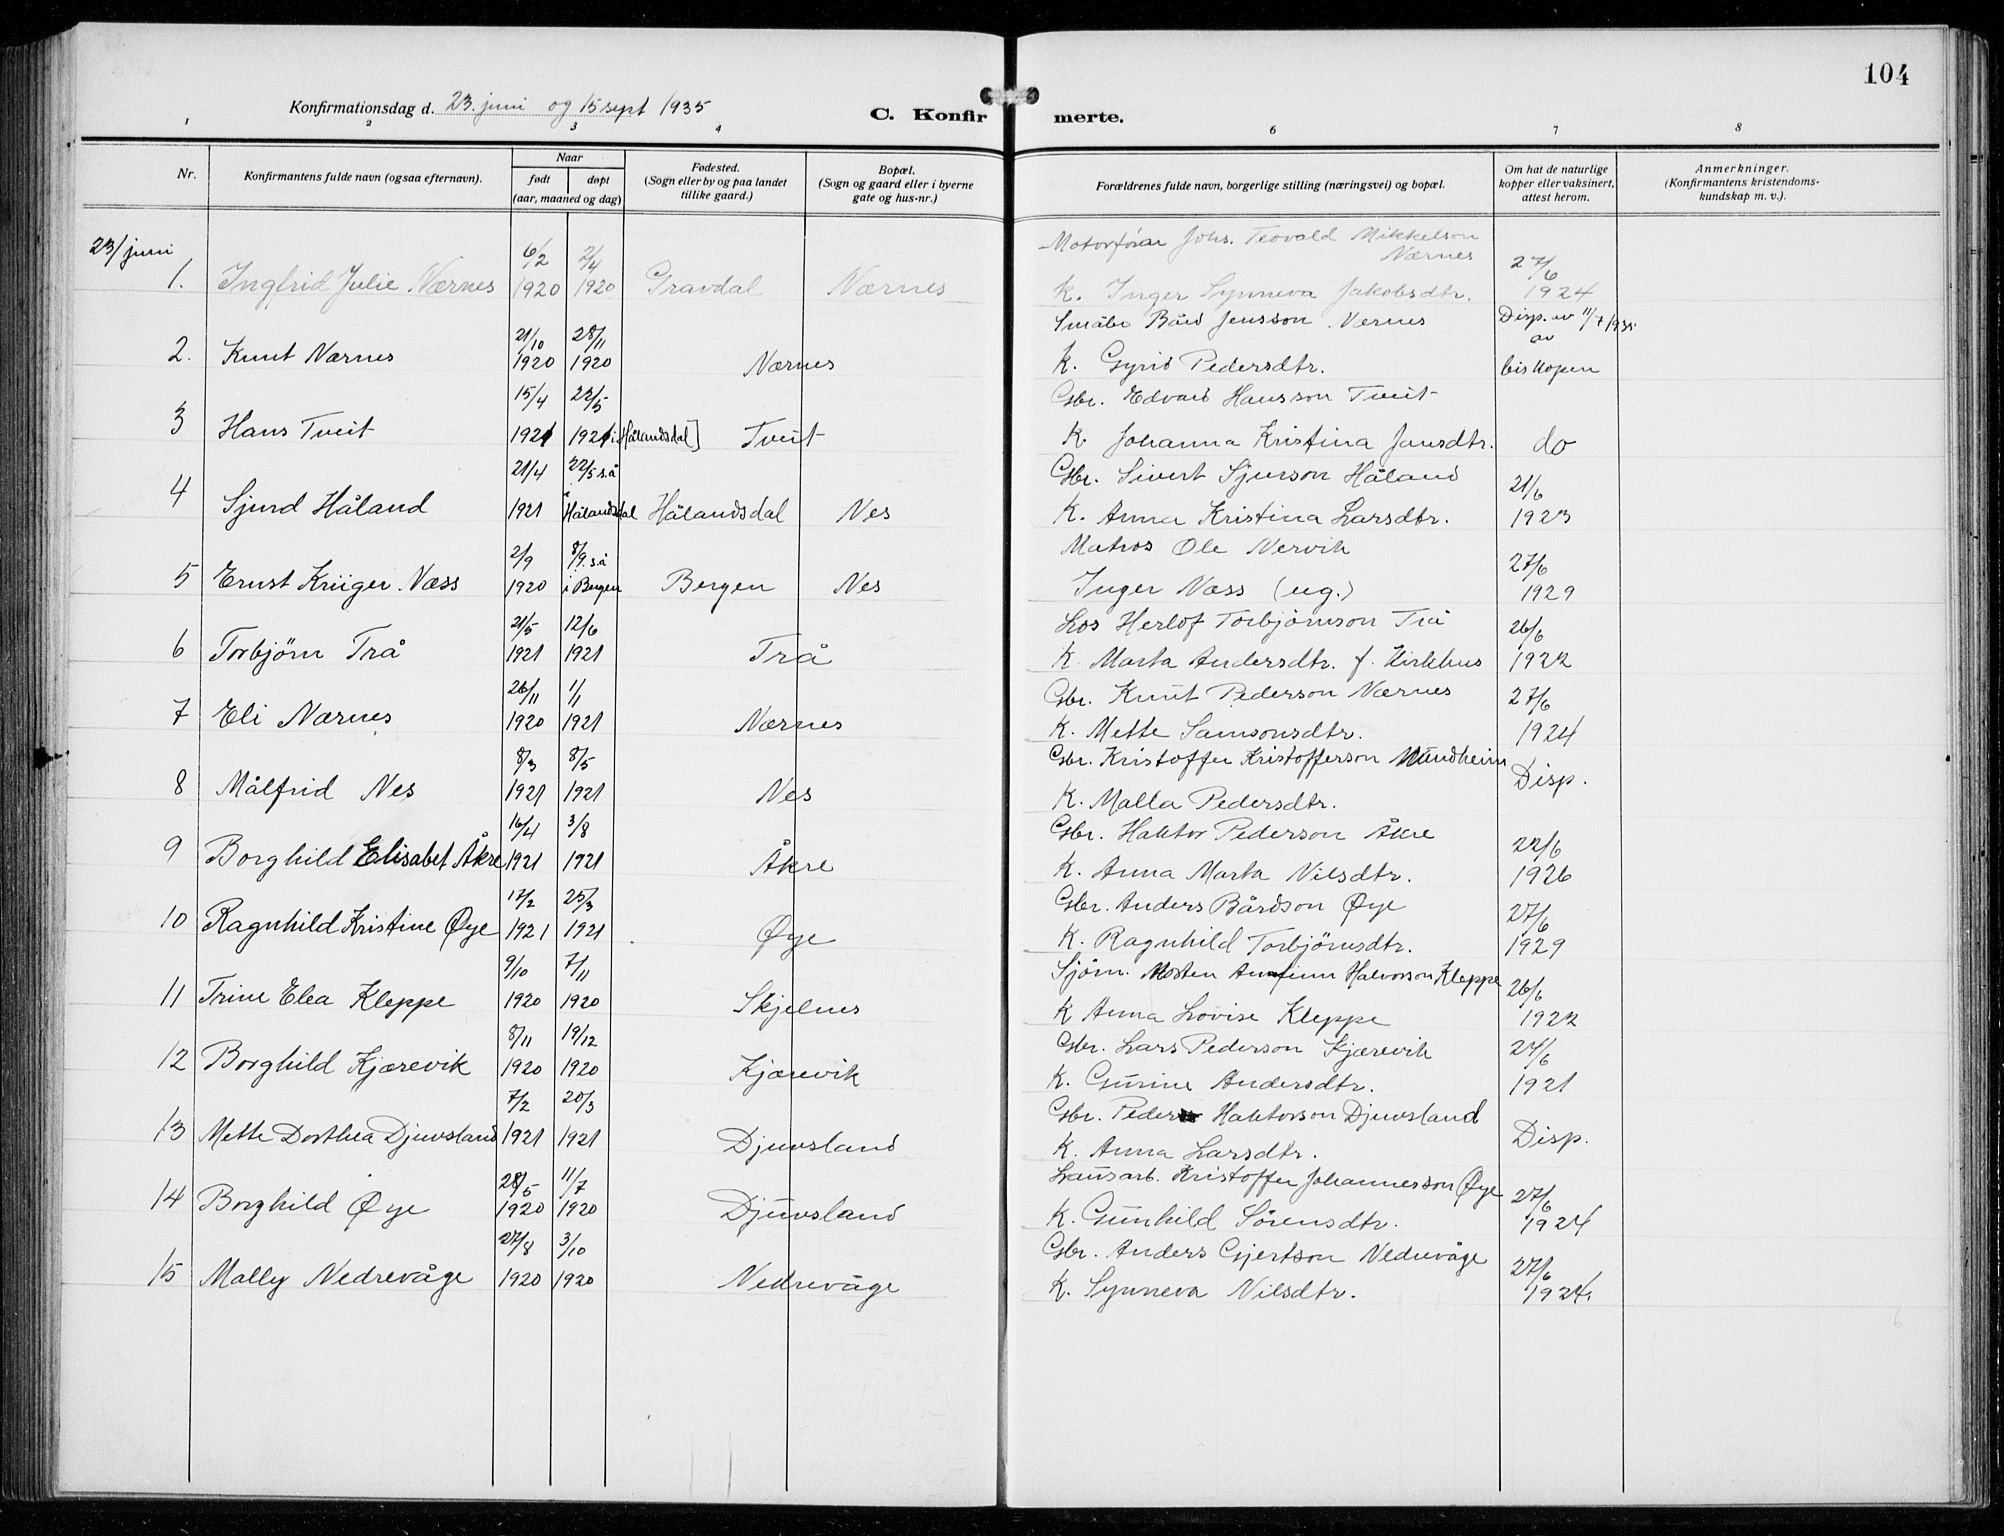 104
Konfirmationsdag d. 23. juni og 15 sept 1935
C. Konfirmerte.
1 2 3 4 6 7 8
Nr.
Konfirmantens fulde navn (ogsaa efternavn).
Naar
født døpt
(aar, maaned og dag)
Fødested.
(Sogn eller by og paa landet
tillike gaard.)
Bopæl.
(Sogn og gaard eller i byerne
gate og hus-nr.)
Forældrenes fulde navn, borgerlige stilling (næringsvei) og bopæl.
Om hat de naturlige
kopper eller vaksinert,
attest herom.
Anmerkninger.
(Konfirmantens kristendoms-
kundskap m. v.).
23/juni
6/2 2/4 Motorfører Johs. Teovald Mikkelson
Nærnes 27/6
1. Ingfrid Julie Nærnes 1920 1920 Gravdal Nærnes K. Inger Synneva Jakobsdtr. 1924
21/10 28/11 Småbr Bård Jensson Nernes Disp. av 11/7 1935
av
2. Knut Nærnes 1920 1920 Nærnes K. Gyrid Pedersdtr. biskopen
15/4 22/5 Gbr. Edvard Hansson Tveit
3 Hans Tveit 1921 1921 i Hålandsdal] Tveit K. Johanna Kristina Jansdtr. do
21/4 22/5 s.å Gbr. Sivert Sjurson Håland 21/6
4 Sjurd Håland 1921 Hålandsdal Hålandsdal Nes K. Anna Kristina Larsdtr. 1923
2/9 8/9 s.å Matros Ole Nervik 27/6
5 Ernst Krüger Næss 1920 i Bergen Bergen Nes Inger Næss (ug.) 1929
21/5 12/6 Los Herlof Torbjörnson Trå 26/6
6 Torbjörn Trå 1921 1921 Trå K. Marta Andersdtr. f. Kirkhus 1922
26/11 1/1 Gbr. Knut Pederson Nærnes 27/6
7 Eli Nærnes 1920 1921 Nærnes K. Mette Samsonsdtr. 1924
8/3 8/5 Gbr. Kristoffer Kristofferson Mundheim Disp.
8 Målfrid Nes 1921 1921 Nes K. Malla Pedersdtr.
16/4 3/8 Gbr. Haktor Pederson Åkre 22/6
9 Borghild Elisabet Åkre 1921 1921 Åkre K. Anna Marta Nilsdtr. 1926
17/2 25/3 Gbr. Anders Bårdson Øye 27/6
10 Ragnhild Kristine Øye 1921 1921 Øye K. Ragnhild Torbjörnsdtr. 1929
9/10 7/11 Sjöm. Morten Halvorson Kleppe 26/6
11 Trine Elea Kleppe 1920 1920 Skjelnes K Anna Lovise Kleppe 1922
8/11 19/12 Gbr. Lars Pederson Kjærevik 24/6
12 Borghild Kjærevik 1920 1920 Kjærevik K. Gurine Andersdtr. 1921
7/2 20/3 Gbr. Peder Haktorson Djuvsland Disp.
13 Mette Dorthea Djuvsland 1921 1921 Djuvsland K. Anna Larsdtr.
28/5 11/7 Lausarb. Kristoffer Johannesson Øye 27/6
14 Borghild Øye 1920 1920 Djuvsland K. Gunhild Sörensdtr. 1924
27/8 3/10 Gbr. Anders Gjertson Nedrevåge 27/6
15 Mally Nedrevåge 1920 1920 Nedrevåge K. Synneva Nilsdtr. 1924.